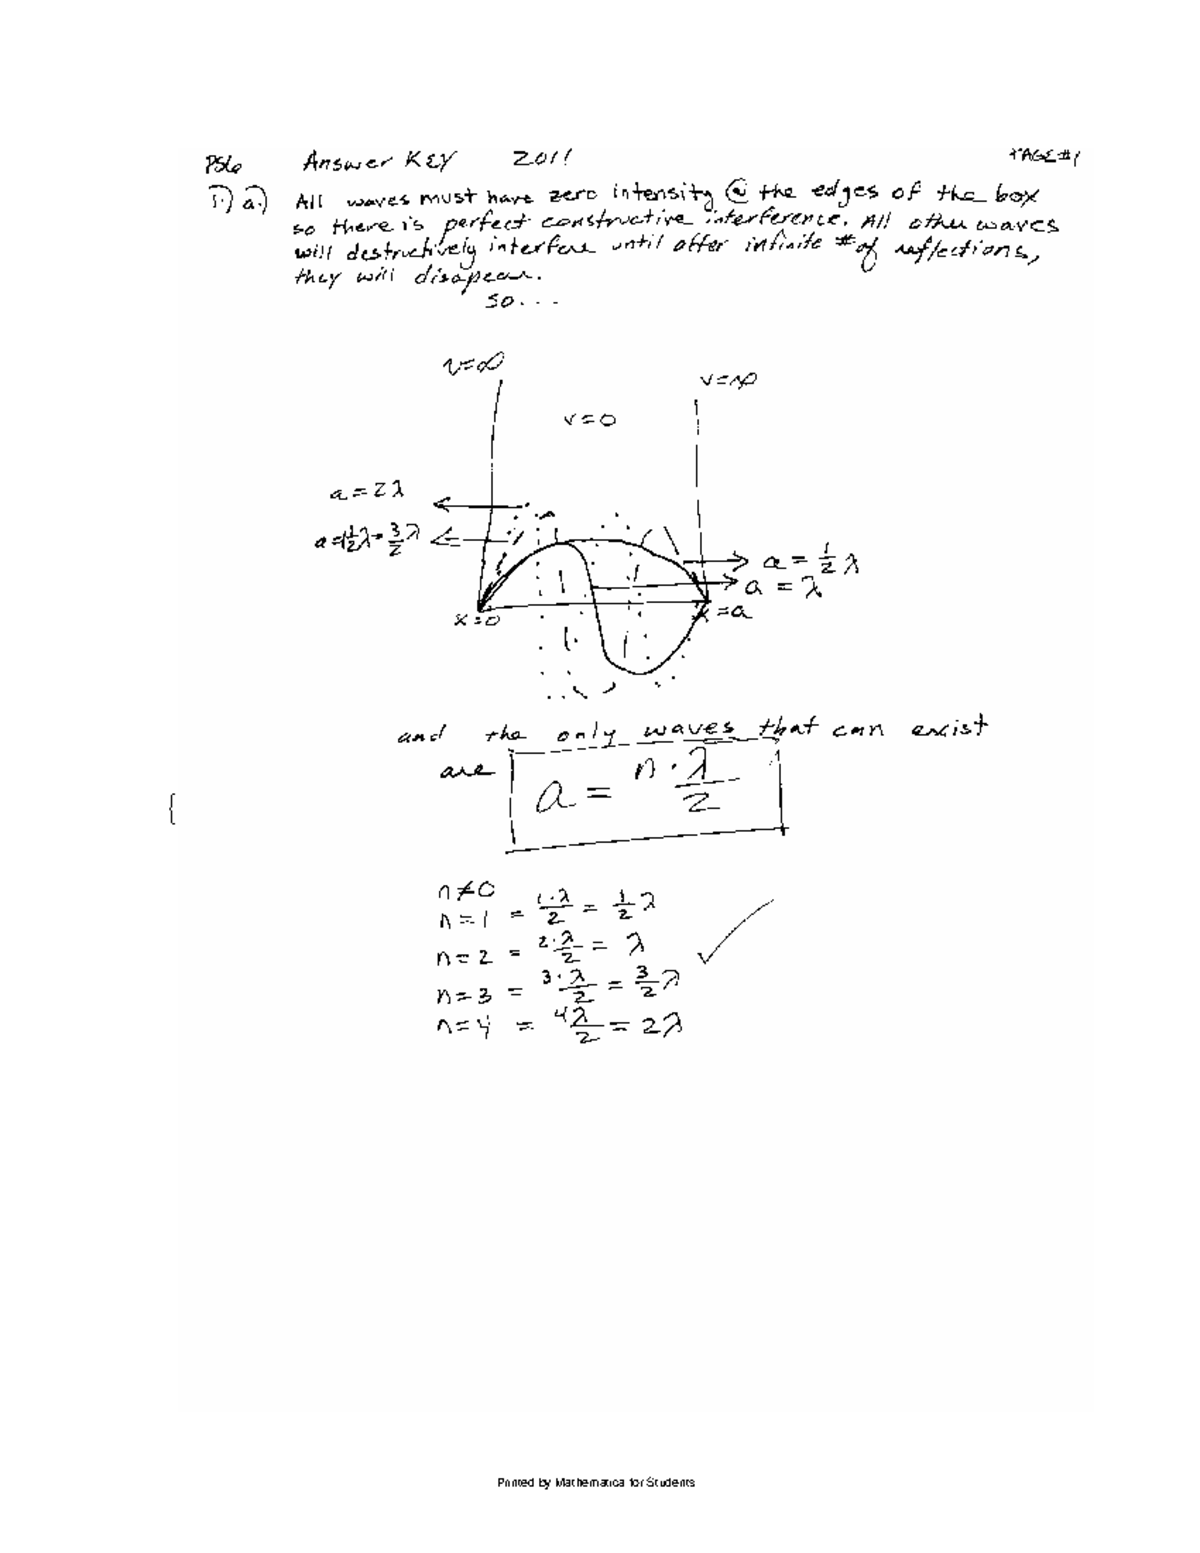 PS6 Answer KEY 2011 PAGE#1
1.) a.) All waves must have zero intensity @ the edges of the box
so there is perfect constructive interference. All other waves
will destructively interfere until after infinite # of reflections,
they will disapear.
so...
v=∞
v=∞
v=0
a=2λ
a=1½λ=3/2λ
a=½λ
a=λ
x=0
x=a
and the only waves that can exist
are a = n·λ/2
{
n≠0
n=1 = 1·λ/2 = ½λ
n=2 = 2·λ/2 = λ
n=3 = 3·λ/2 = 3/2λ
n=4 = 4λ/2 = 2λ
Printed by Mathematica for Students